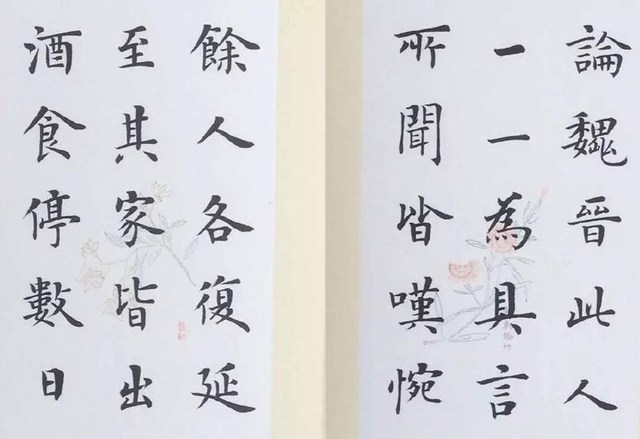 論魏晉此人
一一為具言
所聞皆嘆惋
餘人各復延
至其家皆出
酒食停數日